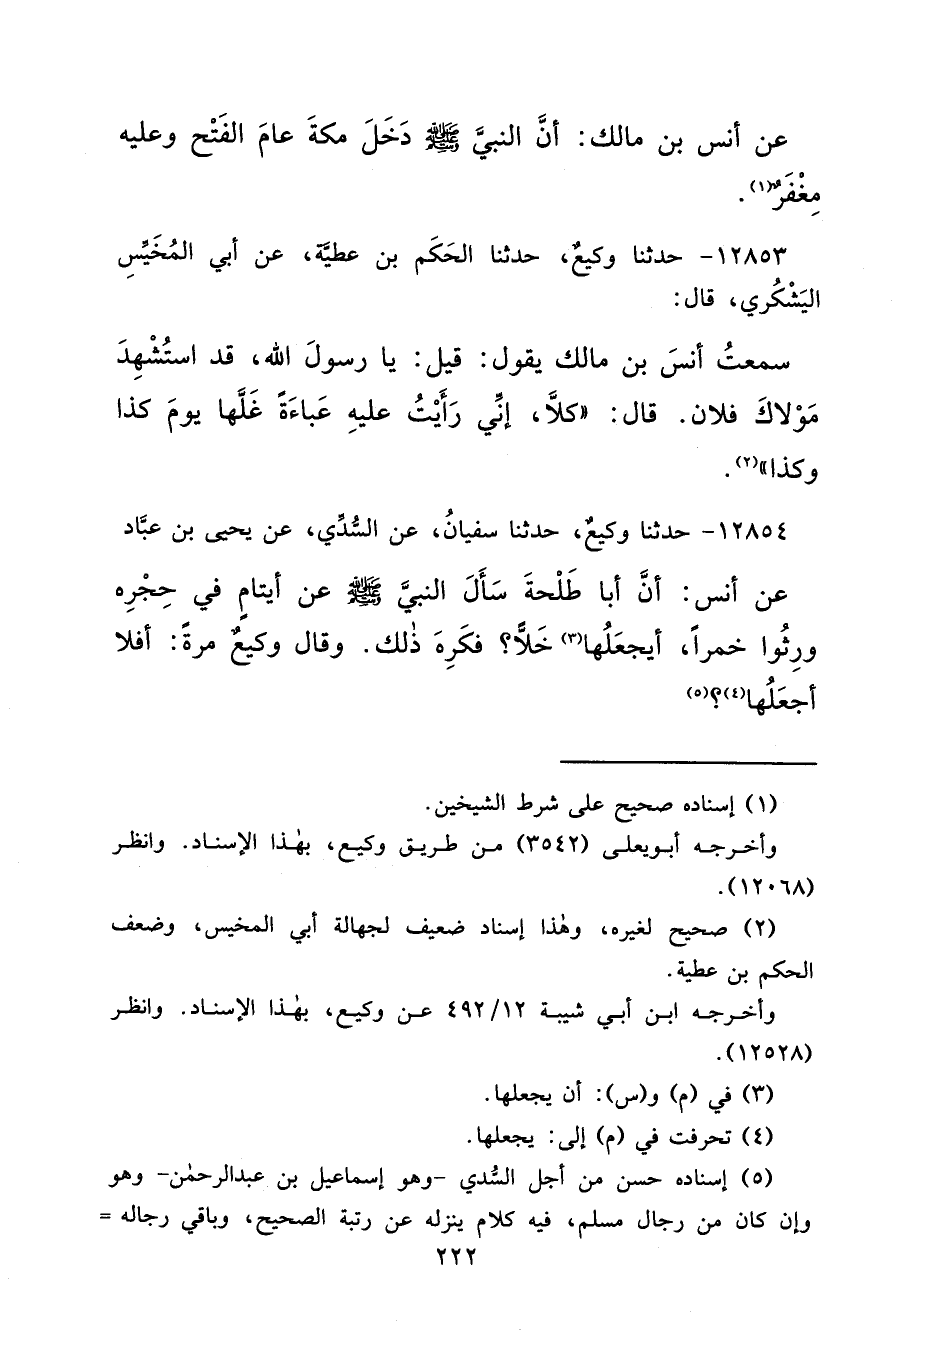 عن أنس بن مالك: أنَّ النبيَّ ﷺ دَخَلَ مكةَ عامَ الفَتْح وعليه
مِغْفَرٌ(١).
١٢٨٥٣- حدثنا وكيعٌ، حدثنا الحَكَم بن عطيَّة، عن أبي المُخَيِّسِ
اليَشْكُري، قال:
سمعتُ أنسَ بن مالك يقول: قيل: يا رسولَ الله، قد استُشْهِدَ
مَوْلاكَ فلان. قال: «كلاَّ، إنِّي رَأَيْتُ عليهِ عَباءَةً غَلَّها يومَ كذا
وكذا»(٢).
١٢٨٥٤- حدثنا وكيعٌ، حدثنا سفيانُ، عن السُّدِّي، عن يحيى بن عبَّاد
عن أنس: أنَّ أبا طَلْحةَ سَأَلَ النبيَّ ﷺ عن أيتامٍ في حِجْرِه
ورِثُوا خمراً، أيجعَلُها(٣) خَلاًّ؟ فكَرِهَ ذٰلك. وقال وكيعٌ مرةً: أفلا
أجعَلُها(٤)؟(٥)
(١) إسناده صحيح على شرط الشيخين.
وأخرجه أبويعلى (٣٥٤٢) من طريق وكيع، بهٰذا الإسناد. وانظر
(١٢٠٦٨).
(٢) صحيح لغيره، وهٰذا إسناد ضعيف لجهالة أبي المخيس، وضعف
الحكم بن عطية.
وأخرجه ابن أبي شيبة ٤٩٢/١٢ عن وكيع، بهٰذا الإسناد. وانظر
(١٢٥٢٨).
(٣) في (م) و(س): أن يجعلها.
(٤) تحرفت في (م) إلى: يجعلها.
(٥) إسناده حسن من أجل السُّدي -وهو إسماعيل بن عبدالرحمٰن- وهو
وإن كان من رجال مسلم، فيه كلام ينزله عن رتبة الصحيح، وباقي رجاله =
٢٢٢